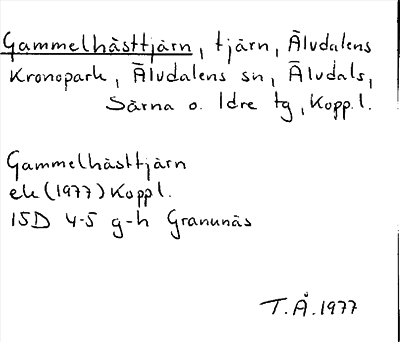 Gammelhästtjärn, tjärn, Älvdalens
Kronopark, Älvdalens sn, Älvdals,
Särna o. Idre tg, Kopp.l.
Gammelhästtjärn
ek (1977) Koppl.
15D 4-5 g-h Granunäs
T.Å. 1977